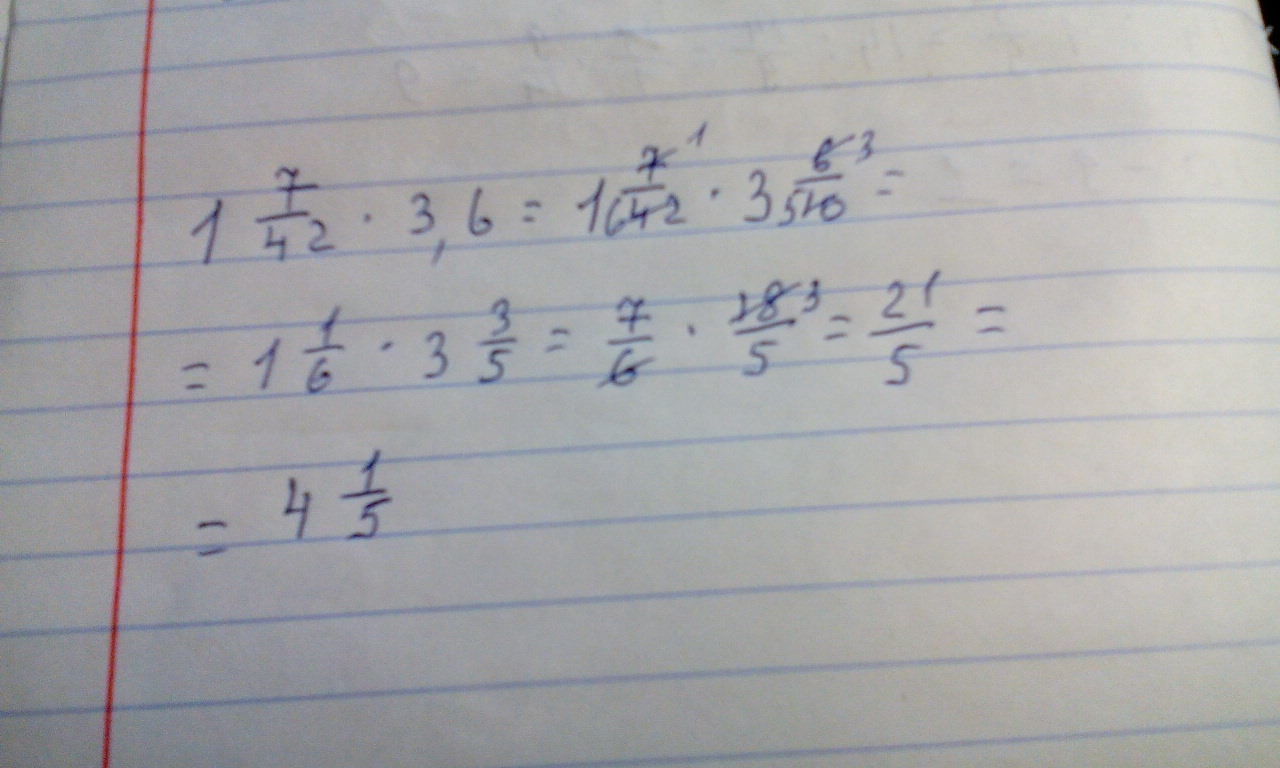 1 7/42 · 3,6 = 1 7/42 · 3 6/10 =
= 1 1/6 · 3 3/5 = 7/6 · 18/5 = 21/5 =
= 4 1/5